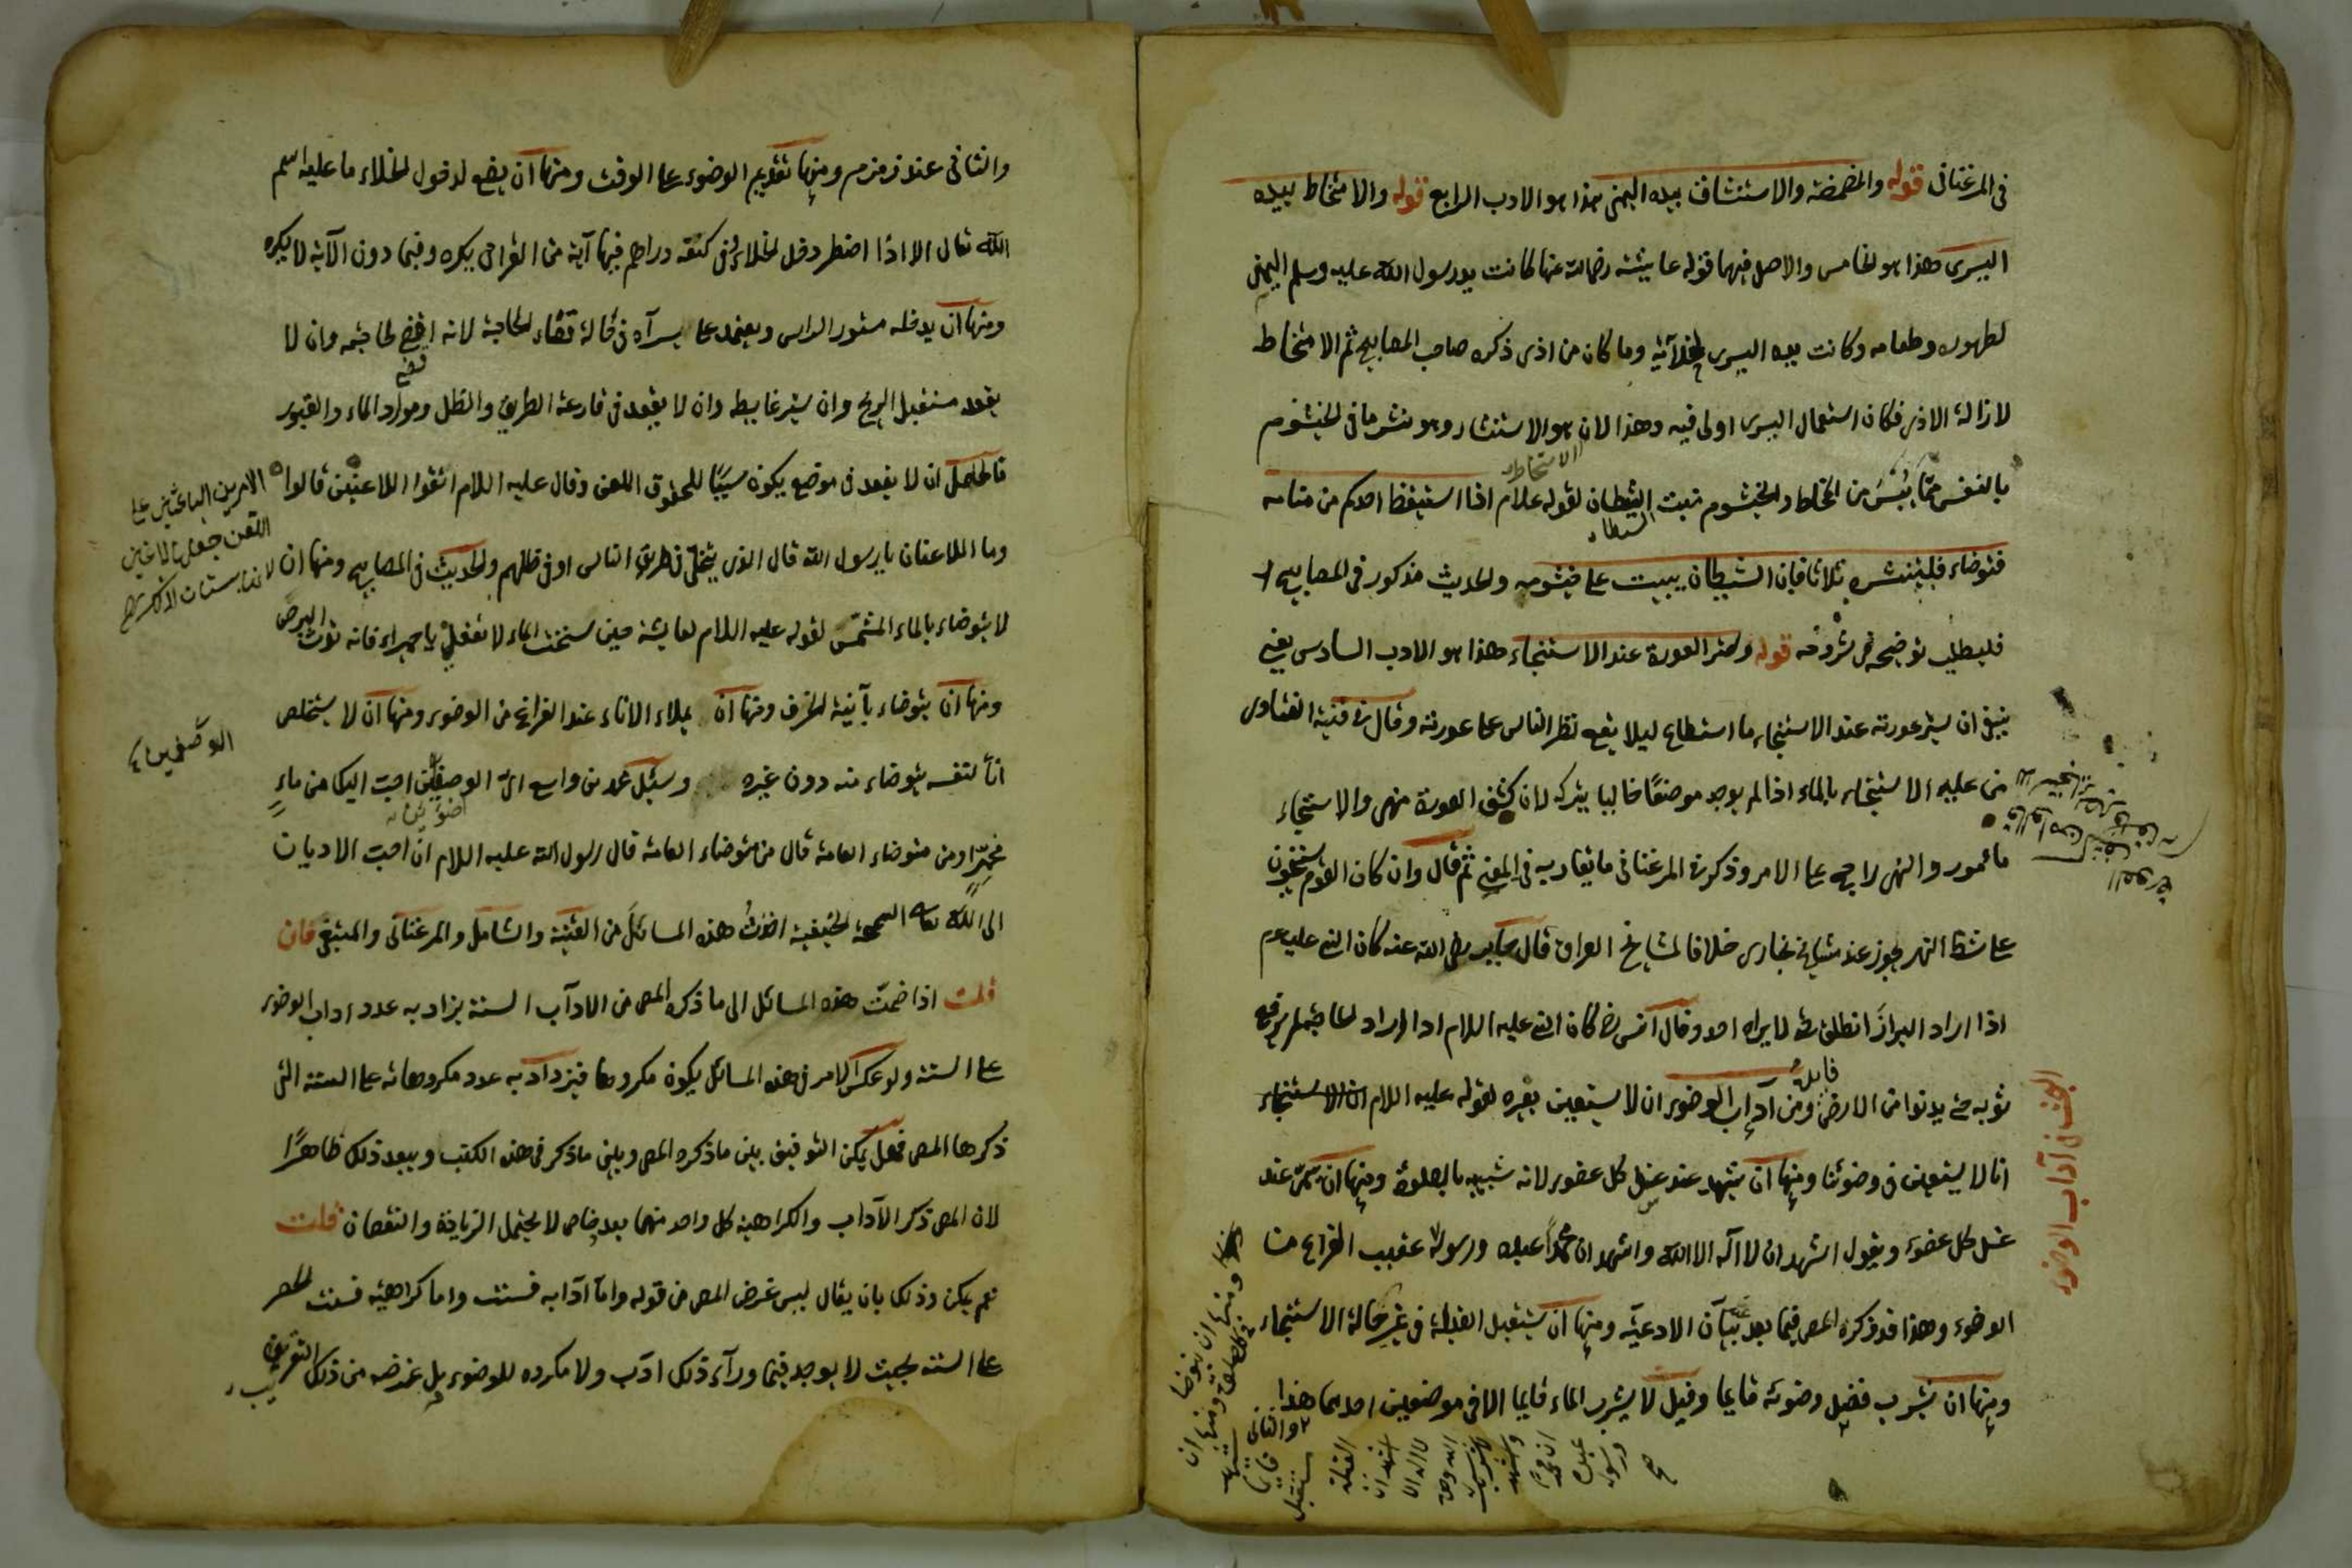 في المرغناني قوله والمضمضة والاستنشاق بيده اليمنى هذا هو الادب الرابع قوله والامتخاط بيده
اليسرى وهذا هو الخامس والاصل فيهما قوله عايشة رضي الله عنها كانت يد رسول الله عليه وسلم اليمنى
لطهوره وطعامه وكانت يده اليسرى لخلائه وما كان من اذى ذكره صاحب المصابيح ثم الامتخاط
لازالة الاذى فكان استعمال اليسرى اولى فيه وهذا لان هو الاستنثار وهو نثر ما في الخيشوم
الامتخاط
بالنفس مما يبس من المخاط والخيشوم مبيت الشيطان لقوله علام اذا استيقظ احدكم من منامه
فتوضاء فليستنثره ثلاثا فان الشيطان يبيت على خيشومه والحديث مذكور في المصابيح
فليطلب توضيحه في شروحه قوله وستر العورة عند الاستنجاء وهذا هو الادب السادس يعني
ينبغي ان يستر عورته عند الاستنجاء ما استطاع ليلا يقع نظر الناس على عورته وقال في قنية الفتاوى
من عليه الاستنجاء بالماء اذا لم يوجد موضعًا خاليا يتركه لان كشف العورة منهى والاستنجاء
مأمور والنهي راجح على الامر وذكر في المرغناني ما يقاربه في المعنى ثم قال وان كان القوم يستنجون
على شط النهر يجوز عند مشايخ بخارى خلافا لمشايخ العراق قال جابر رضي الله عنه كان النبي عليه م
اذا اراد البراز انطلق حتى لا يراه احد وقال انس رض كان النبي عليه اللام اذا اراد الحاجة لم يرفع
ثوبه حتى يدنوا من الارض ومن آداب الوضوء ان لا يستعين بغيره لقوله عليه اللام ان الاستنجاء
انا لا يستعين في وضوئنا ومنها ان يتشهد عند غسل كل عضو لانه شبيه بالصلوة ومنها ان يسمى عند
غسل كل عضو ويقول اشهد ان لا اله الا الله واشهد ان محمداً عبده ورسوله عقيب الفراغ من
الوضوء وهذا قد ذكره المص فيما بعد بيان الادعية ومنها ان يستقبل القبلة في غير حالة الاستنجاء
ومنها ان يشرب فضل وضوئه قايما وقيل لا يشرب الماء قايما الا في موضعين احدهما هذا
البحث في آداب الوضوء
ومنها ان يتوضا
ومنها ان
والثاني عند زمزم ومنها تقديم الوضوء على الوقت ومنها ان يضع لدخول الخلاء ما عليه اسم
الله تعالى الا اذا اضطر دخل الخلاء وفي كفه دراهم فيها آية من القرآن يكره وفيما دون الآية لا يكره
ومنها ان يدخله مستور الراس ويعتمد على يسراه في حالة قضاء الحاجة لانه اقضى لحاجته وان لا
يقعد مستقبل الريح وان يستر غايطه وان لا يقعد في قارعة الطريق والظل وموارد الماء والقبور
فالحاصل ان لا يقعد في موضع يكون سببًا للحوق اللعن وقال عليه اللام اتقوا اللاعنين قالوا
وما اللاعنان يا رسول الله قال الذي يتخلى في طريق الناس او في ظلهم والحديث في المصابيح ومنها ان
لا يتوضاء بالماء المشمس لقوله عليه اللام لعايشة حين سخنت الماء لا تفعلي يا حميراء فانه يورث البرص
ومنها ان يتوضاء بآنية الخزف ومنها ان يملاء الاناء عند الفراغ من الوضوء ومنها ان لا يستخلص
اناً لنفسه يتوضاء منه دون غيره وسئل محمد بن واسع اي الوضوئين احب اليك من ماء
مخمر او من متوضاء العامة قال من متوضاء العامة قال رسول الله عليه اللام ان احب الاديان
الى الله تعالى السمحة الحنيفية اخذت هذه المسائل من القنية والشامل والمرغناني والمبتغى فان
قلت اذا ضمت هذه المسائل الى ما ذكره المص من الادآب الستة يزاد به عدد اداب الوضوء
على الستة ولو عكس الامر في هذه المسائل يكون مكروها فيزداد به عدد مكروهاته على الستة التي
ذكرها المص فهل يمكن التوفيق بين ما ذكره المص وبين ما ذكر في هذه الكتب ويبعد ذلك ظاهرًا
لان المص ذكر الآداب والكراهية كل واحد منهما بعدد خاص لا يحتمل الزيادة والنقصان قلت
نعم يمكن وذلك بان يقال ليس غرض المص من قوله واما آدابه فستت واما كراهيته فستت الحصر
على الستة بحيث لا يوجد فيما وراء ذلك ادب ولا مكروه للوضوء بل غرضه من ذلك التقريب
الامرين الباعثين على
اللعن جعل